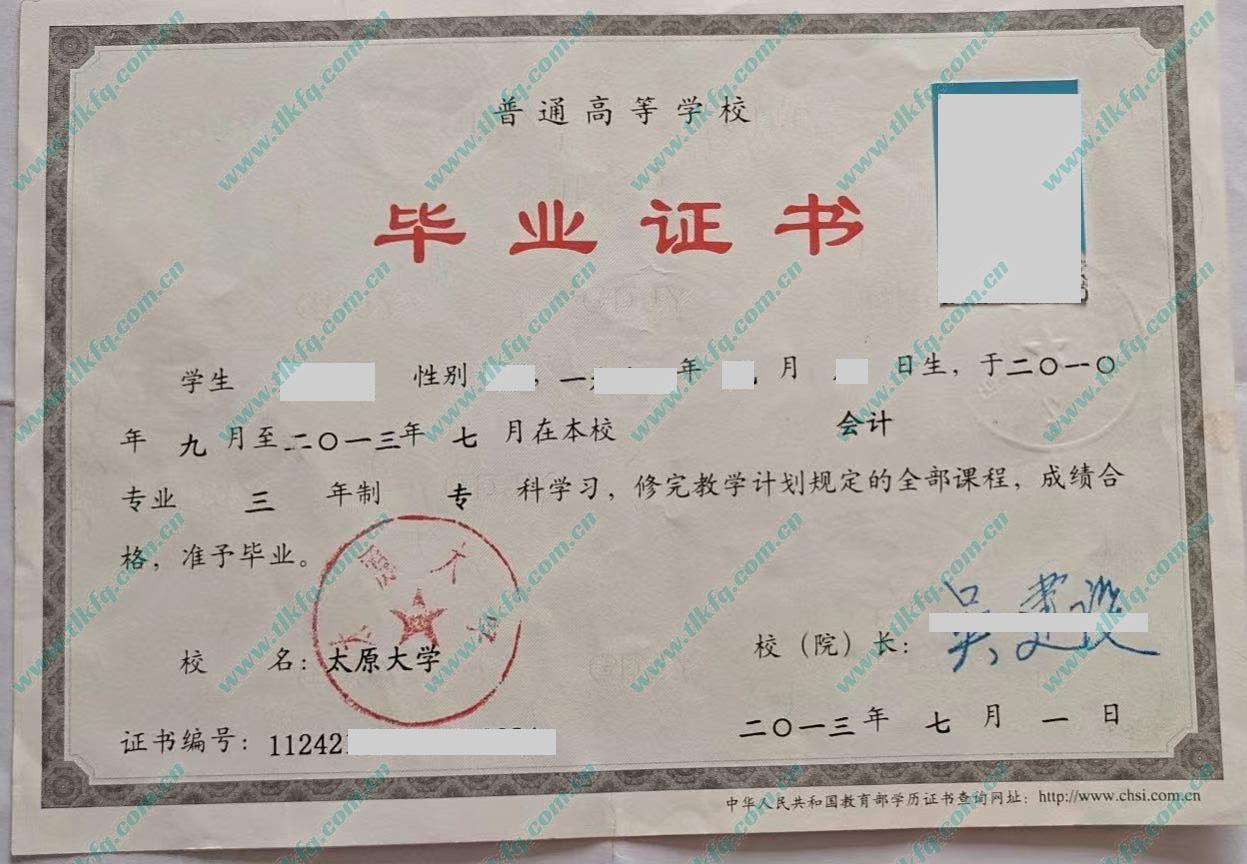 普通高等学校
毕业证书
学生 性别 , 一 年 月 日生，于二〇一〇
年 九 月至二〇一三年 七 月在本校 会计
专业 三 年制 专 科学习，修完教学计划规定的全部课程，成绩合
格，准予毕业。
校 名：太原大学
校（院）长：
证书编号：11242
二〇一三年 七 月 一 日
中华人民共和国教育部学历证书查询网址：http://www.chsi.com.cn
www.tlkfq.com.cn